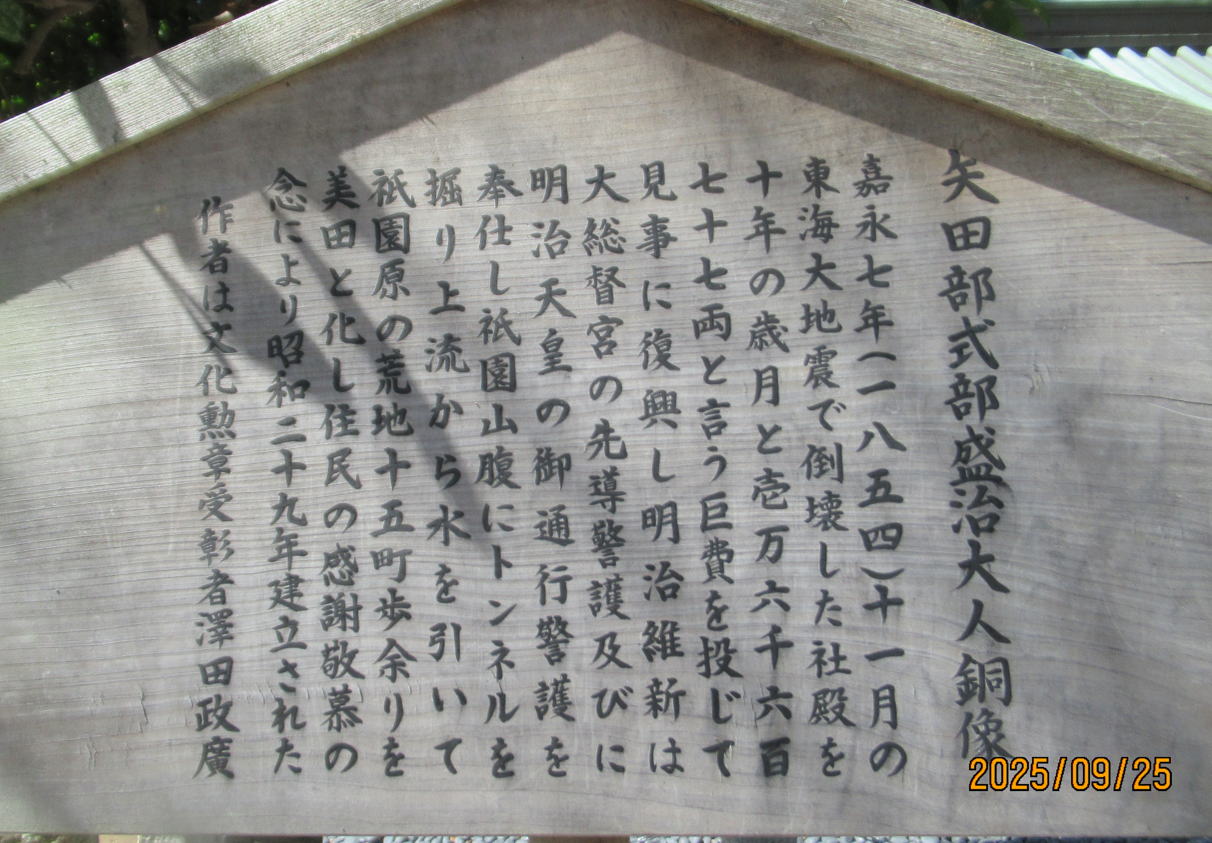 矢田部式部盛治大人銅像
嘉永七年(一八五四)十一月の
東海大地震で倒壊した社殿を
十年の歳月と壱万六千六百
七十七両と言う巨費を投じて
見事に復興し明治維新は
大総督宮の先導警護及びに
明治天皇の御通行警護を
奉仕し祇園山腹にトンネルを
掘り上流から水を引いて
祇園原の荒地十五町歩余りを
美田と化し住民の感謝敬慕の
念により昭和二十九年建立された
作者は文化勲章受彰者澤田政廣
2025/09/25